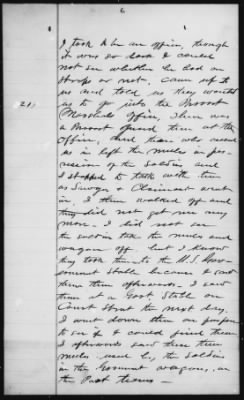 6
I took to be an officer, though
it was so dark I could
not see whether he had on
straps or not. Came up to
us and told us they wanted
us to go into the Provost
21) Marshals Office, there was
a Provost Guard there at the
Office, and those who
us in left the mules in pos-
session of the Soldiers and
I stopped to talk with them
as Sawyer & Claimant went
in. I then walked off and
they did not get me any
more. I did not see
the soldiers take the mules and
wagon off but I know
they took them to the U.S. Gov-
ernment Stable because I saw
them there afterwards. I saw
them at a Govt Stable on
Court Street the next day,
I went down there on purpose
to see if I could find them
I afterwards saw these three
mules used by the Soldiers
in the Government wagons, on
the Post teams —